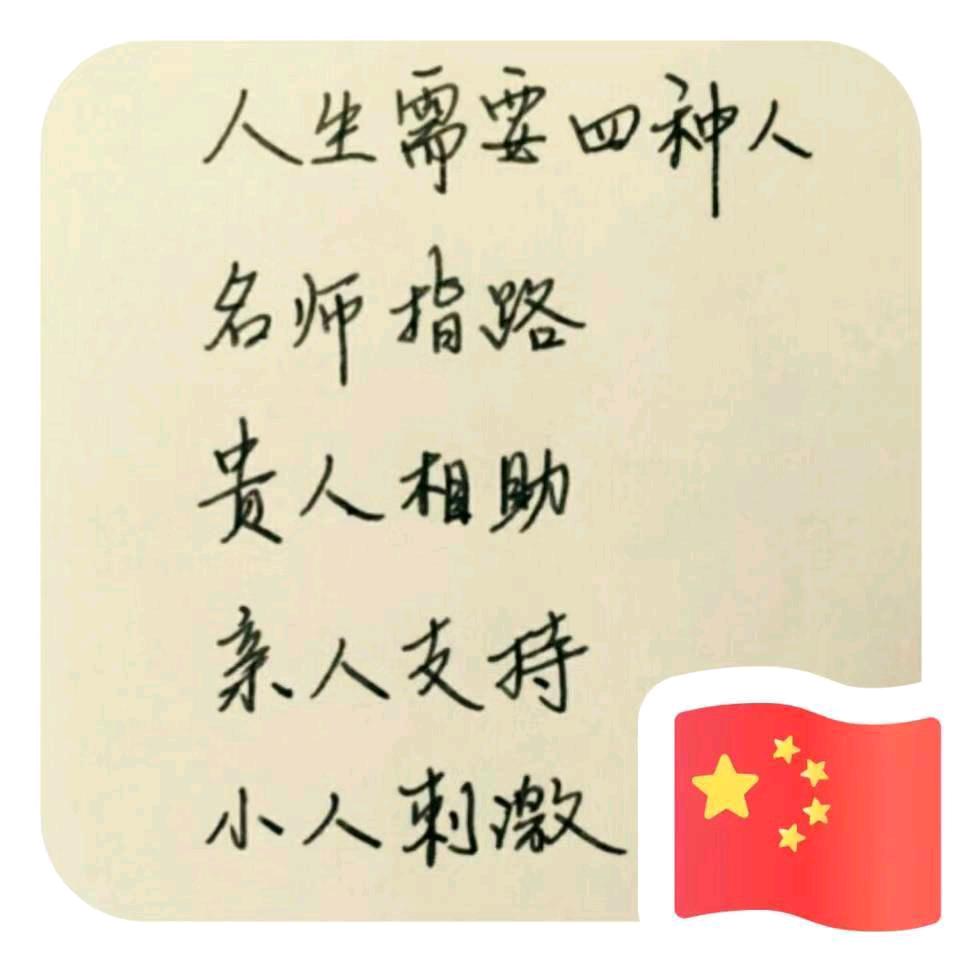 人生需要四种人
名师指路
贵人相助
亲人支持
小人刺激